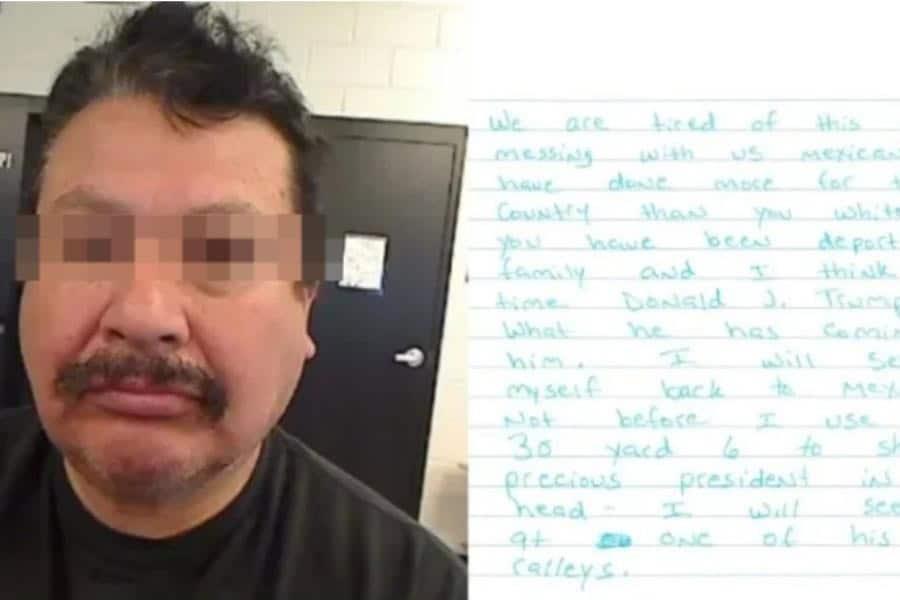 We are tired of this
messing with us mexican
have done more for t
Country than you white
you have been deport
family and I think
time Donald J. Trump
What he has Comin
him. I will se
myself back to Mex
Not before I use
30 yard 6 to sh
precious president in
head - I will see
at one of his
ralleys.